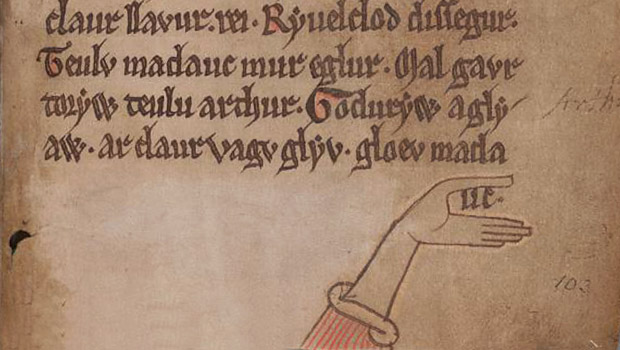 claur llavur. rei. Ryuelclod dissegur.
Teulv madauc mur eglur. Mal gavr
toryw teulu arthur. Goduryw agly
aw. ar claur vagv glyv. gloev mada
uc.
103